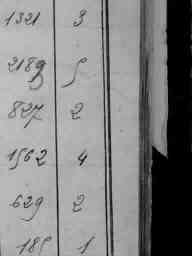 1321 3
2189 5
827 2
1562 4
629 2
185 1